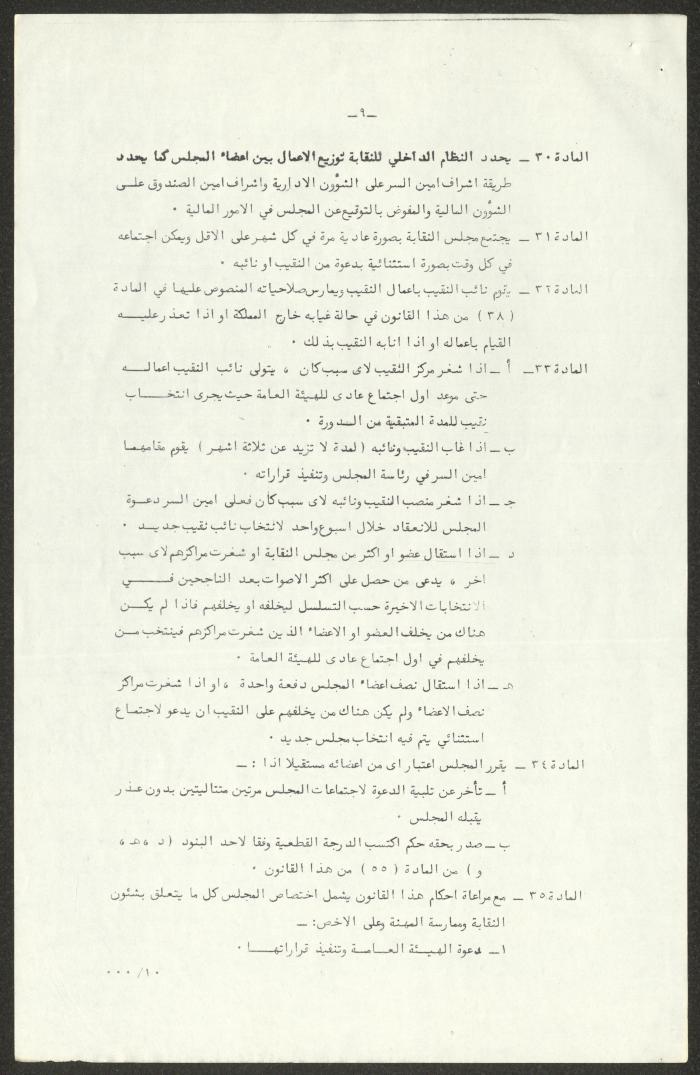 ـ ٩ ـ
المادة ٣٠ ـ يحدد النظام الداخلي للنقابة توزيع الاعمال بين اعضاء المجلس كما يحدد
طريقة اشراف امين السر على الشؤون الادارية واشراف امين الصندوق علـى
الشؤون المالية والمفوض بالتوقيع عن المجلس في الامور المالية ٠
المادة ٣١ ـ يجتمع مجلس النقابة بصورة عادية مرة في كل شهر على الاقل ويمكن اجتماعه
في كل وقت بصورة استثنائية بدعوة من النقيب او نائبه ٠
المادة ٣٢ ـ يقوم نائب النقيب باعمال النقيب ويمارس صلاحياته المنصوص عليها في المادة
( ٣٨ ) من هذا القانون في حالة غيابه خارج المملكة او اذا تعذر عليـــه
القيام باعماله او اذا انابه النقيب بذلك ٠
المادة ٣٣ـ أ ـ اذا شغر مركز النقيب لاى سبب كان ، يتولى نائب النقيب اعمالـــه
حتى موعد اول اجتماع عادى للهيئة العامة حيث يجرى انتخـــاب
نقيب للمدة المتبقية من الـدورة ٠
ب ـ اذا غاب النقيب ونائبه ( لمدة لا تزيد عن ثلاثة اشهر ) يقوم مقامهما
امين السر في رئاسة المجلس وتنفيذ قراراته ٠
جـ ـ اذا شغر منصب النقيب ونائبه لاى سبب كان فعلى امين السر دعـوة
المجلس للانعقاد خلال اسبوع واحد لانتخاب نائب نقيب جديـد ٠
د ـ اذا استقال عضو او اكثر من مجلس النقابة او شغرت مراكزهم لاى سبب
اخر ، يدعى من حصل على اكثر الاصوات بعد الناجحين فـــي
الانتخابات الاخيرة حسب التسلسل ليخلفه او يخلفهم فاذا لم يكـــن
هناك من يخلف العضو او الاعضاء الذين شغرت مراكزهم فينتخب مـن
يخلفهم في اول اجتماع عادى للهيئة العامة ٠
هـ ـ اذا استقال نصف اعضاء المجلس دفعة واحدة ، او اذا شغرت مراكز
نصف الاعضاء ولم يكن هناك من يخلفهم على النقيب ان يدعو لاجتماع
استثنائي يتم فيه انتخاب مجلس جديد ٠
المادة ٣٤ ـ يقرر المجلس اعتبار اى من اعضائه مستقيلا اذا : ـ
أ ـ تأخر عن تلبية الدعوة لاجتماعات المجلس مرتين متتاليتين بدون عذر
يقبله المجلس ٠
ب ـ صدر بحقه حكم اكتسب الدرجة القطعية وفقا لاحد البنود ( د ، هـ ،
و ) من المادة ( ٥٥ ) من هذا القانون ٠
المادة ٣٥ ـ مع مراعاة احكام هذا القانون يشمل اختصاص المجلس كل ما يتعلق بشئون
النقابة وممارسة المهنة وعلى الاخص: ـ
١ـ دعوة الهيـئة العـامـة وتنفيذ قراراتهــا ٠
١٠/ ٠٠٠